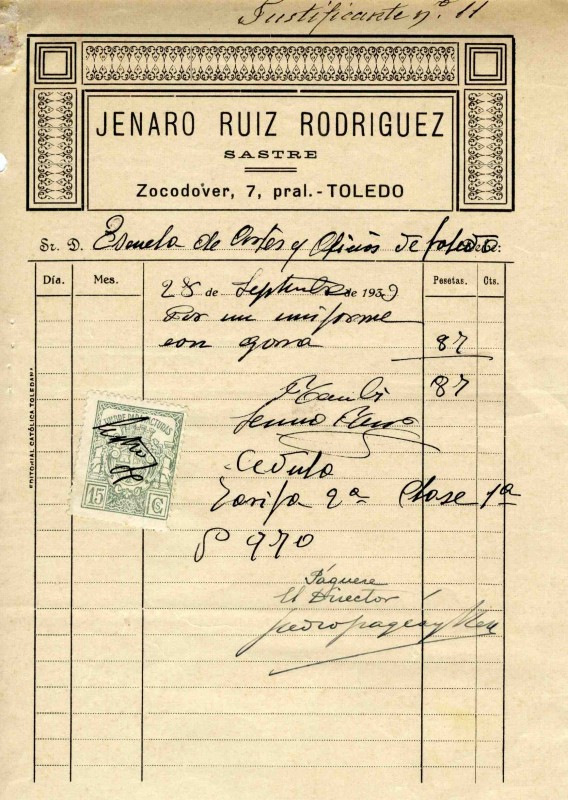 Justificante nº 11
JENARO RUIZ RODRIGUEZ
SASTRE
Zocodover, 7, pral.-TOLEDO
Sr. D. Escuela de Artes y Oficios de Toledo Debe:
Día. Mes. Pesetas. Cts.
28 de Septbre de 1939
Por un uniforme
con gorra 87
87
Recibí
Cedula
Tarifa 2ª Clase 1ª
15 Cs
EDITORIAL CATÓLICA TOLEDANA
Páguese
El Director